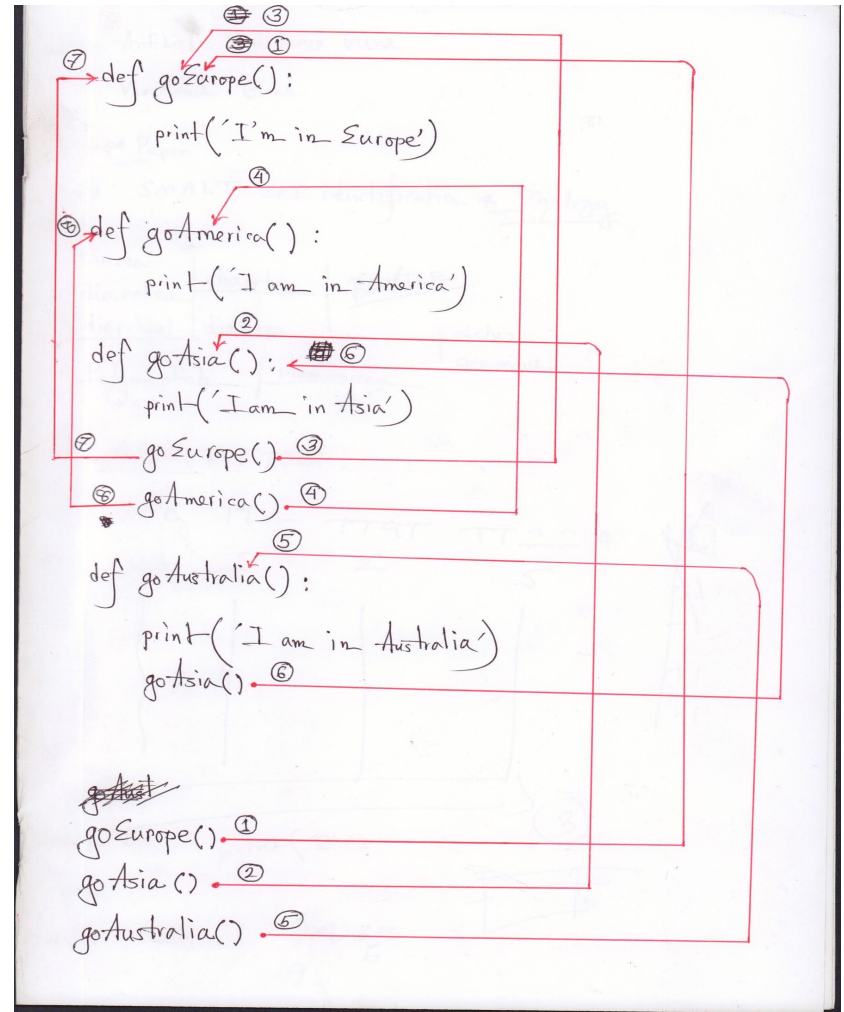 ③
①
⑦ def goEurope():
print('I'm in Europe')
④
⑧ def goAmerica():
print('I am in America')
②
def goAsia(): ⑥
print('I am in Asia')
⑦ goEurope() ③
⑧ goAmerica() ④
⑤
def goAustralia():
print('I am in Australia')
goAsia() ⑥
goEurope() ①
goAsia() ②
goAustralia() ⑤